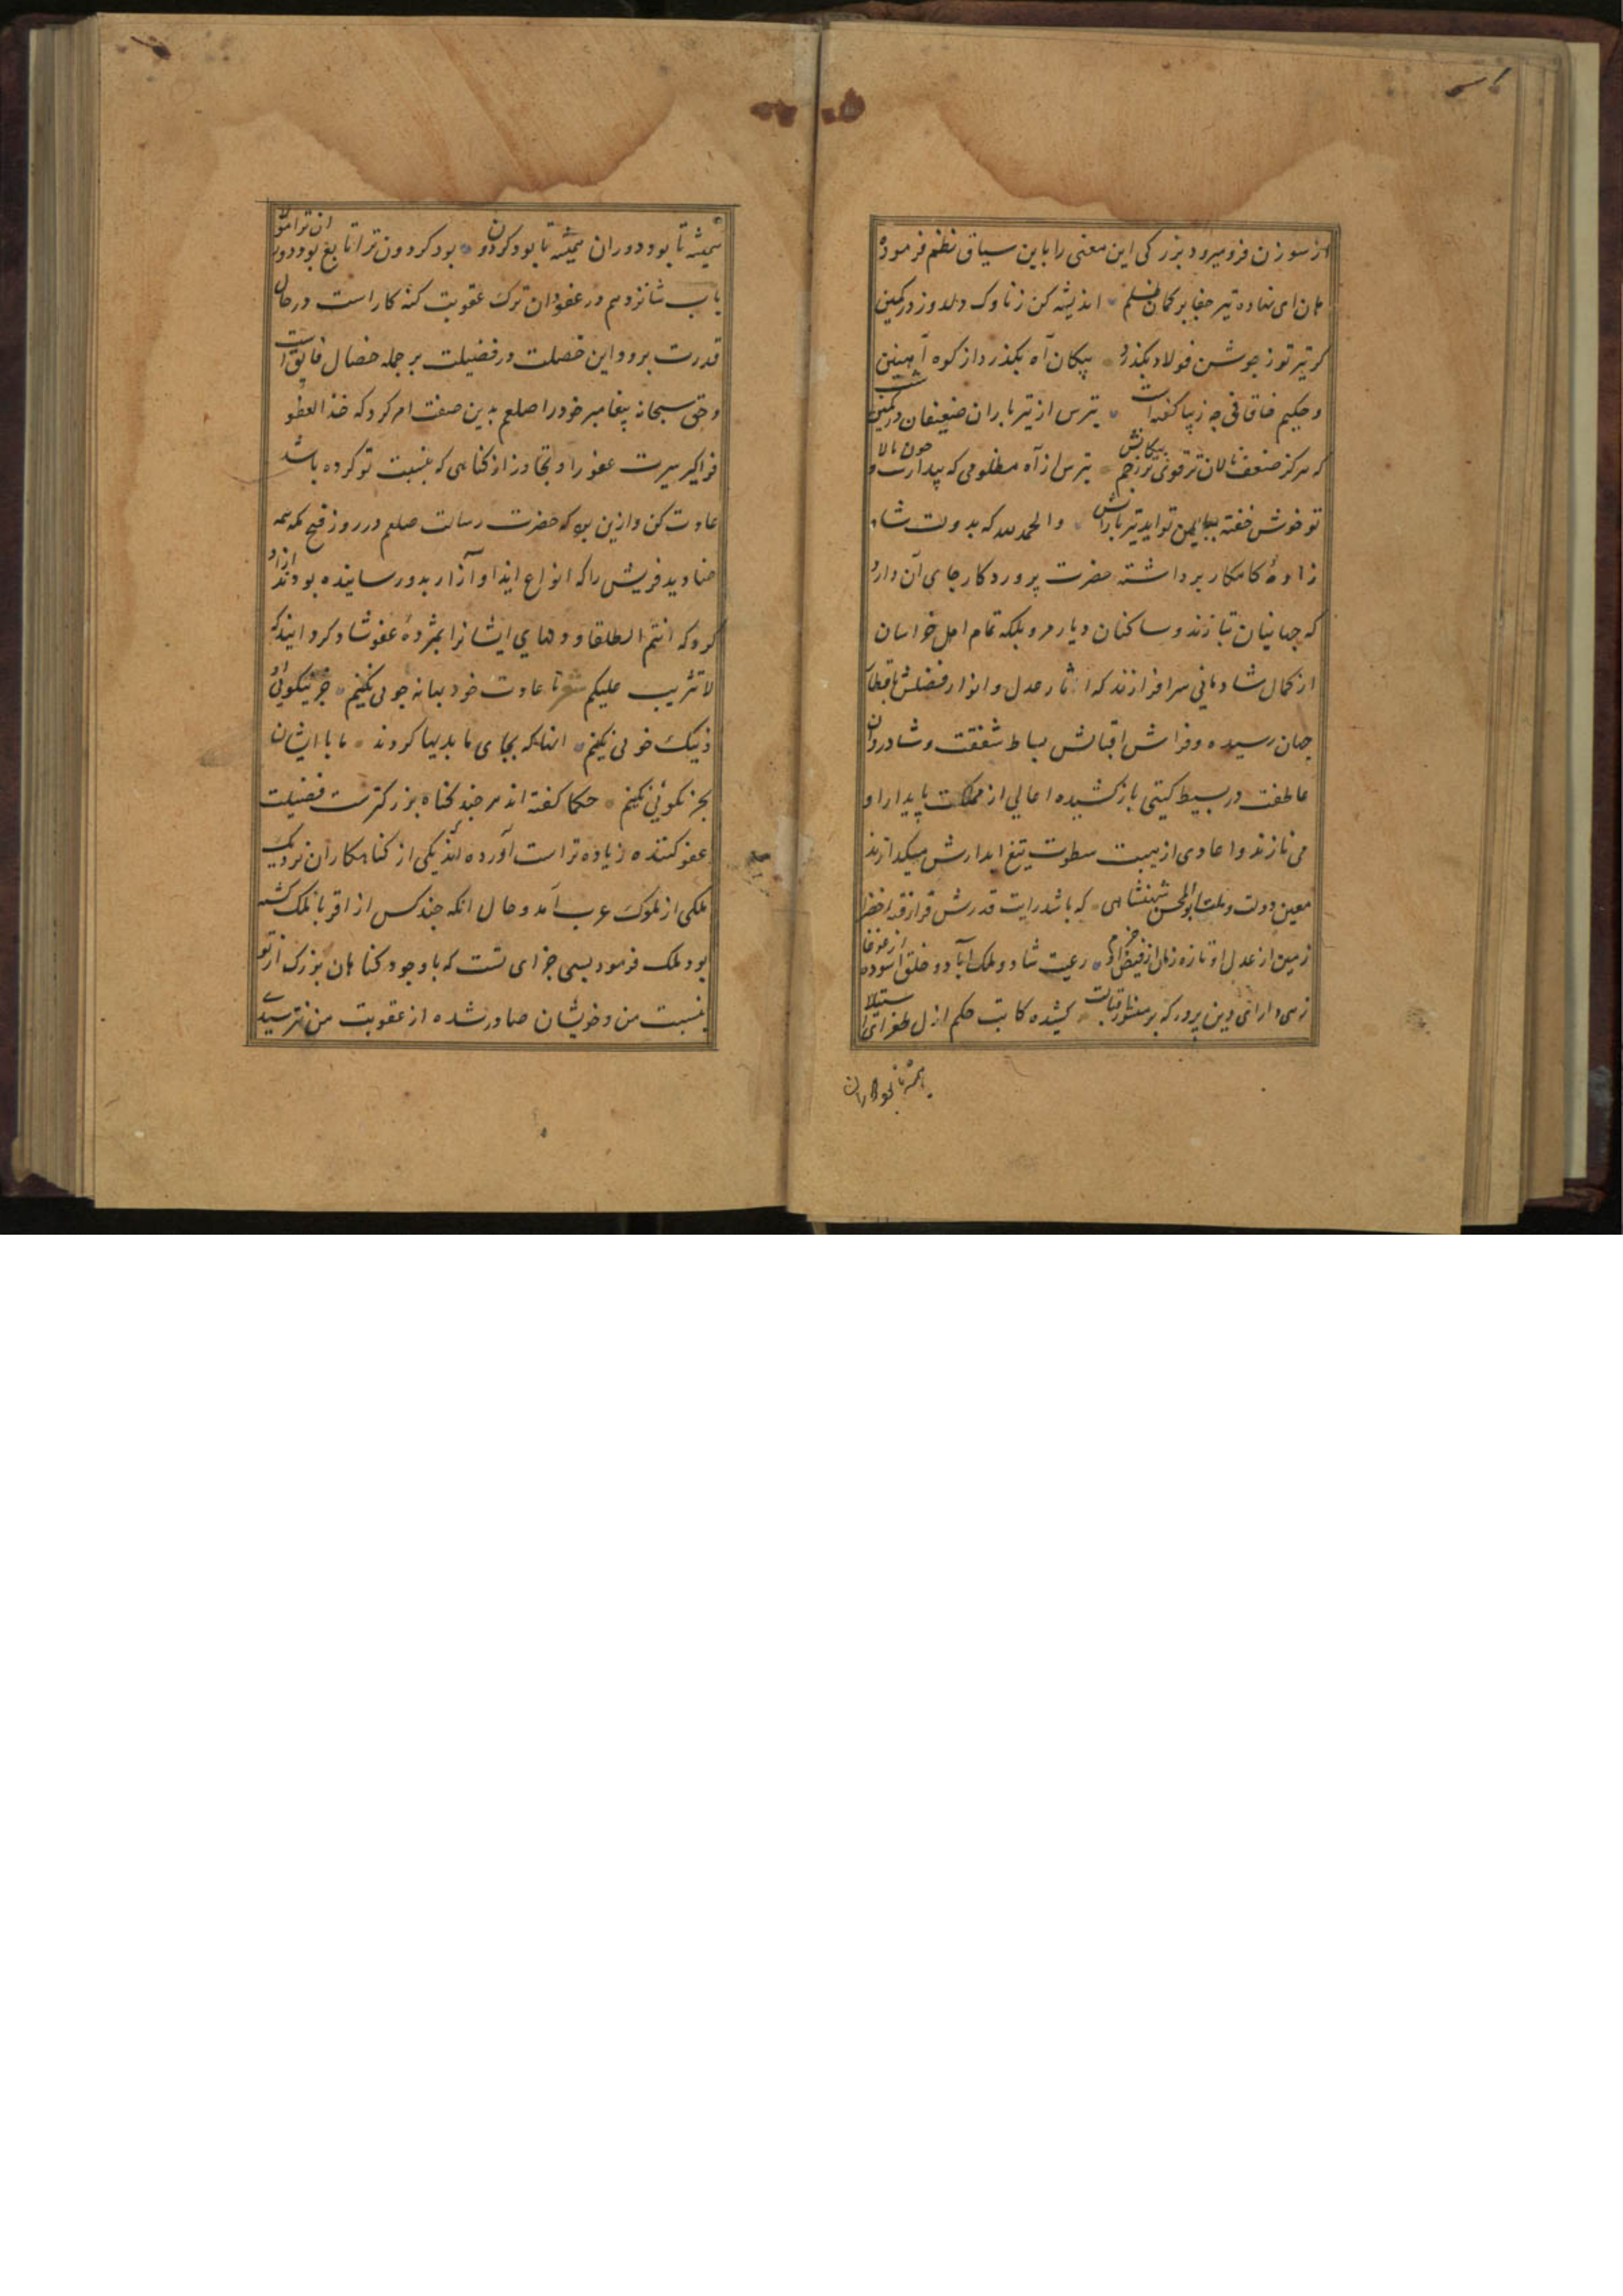 از سوزن فرو میرود بزرکی این معنی را باین سیاق نظم فرموده
هان ای نهاده تیر جفا بر کمان ظلم اندیشه کن ز ناوک دلدوز در کمین
کر تیر تو ز جوشن فولاد بکذرد پیکان آه بکذرد از کوه آهنین
و حکیم خاقانی چه زیبا کفته است بترس از تیر باران ضعیفان در کمین شب
که هرکز ضعف نالان تر قوی تر زخم پیکانش بترس از آه مظلومی که بیدارست و خون پالا
تو خوش خفته ببالین تو اید تیر بارانش و الحمد لله که بدولت شاه
زادهٔ کامکار برداشته حضرت پروردکار جای آن دارد
که جهانیان بنازند و ساکنان دیار مرو بلکه تمام اهل خراسان
از کمال شادمانی سر افرازند که اثار عدل و انوار فضلش باقطار
جهان رسیده و فراش اقبالش بساط شفقت و شادروان
عاطفت در بسیط کیتی باز کشیده اعالی از مملکت پایدار او
می نازند و اعادی از هیبت سطوت تیغ ابدارش میکدازند
معین دولت و ملت ابوالمحسن شهنشاهی که باشد رایت قدرش فراز قبه خضرا
زمین از عدل او تازه زمان از فیض او خرم رعیت شاد و ملک آباد و خلق اسوده از غوغا
زهی دارای دین پرور که بر منشور اقبالت کشیده کاتب حکم ازل طغرای استیلا
همیشه تا بود دوران
همیشه تا بود دوران همیشه تا بود کردون بود کردون ترا تابع بود دوران ترا مولا
باب شانزدهم در عفو و ان ترک عقوبت کنه کار است در حال
قدرت برو و این خصلت در فضیلت بر جمله خصال فایق است
و حق سبحانه پیغامبر خود را صلعم بدین صفت امر کرد که خذ العفو
فراکیر سیرت عفو را و تجاوز از کناهی که بنسبت تو کرده باشد
عادت کن و ازین بود که حضرت رسالت صلعم در روز فتح مکه همه
صنادید قریش را که انواع ایذا و آزار بدو رسانیده بودند ازاد
کرد که انتم الطلقا و دلهای ایشانرا بمژدهٔ عفو شاد کردانید که
لا تثریب علیکم شعر ما عادت خود بهانه جویی نکنیم جز نیکویی و
نیک خویی نکنیم انها که بجای ما بدیها کردند ما با ایشان
بجز نکویی نکنیم حکما کفته اند هر چند کناه بزرکترست فضیلت
عفو کننده زیاده تر است آورده اند که یکی از کناهکاران نزدیک
ملکی از ملوک عرب آمد و حال انکه چند کس از اقربا ملک کشته
بود ملک فرمود بسی جزای تست که با وجود کناهان بزرک از تو
بنسبت من و خویشان صادر شده از عقوبت من نترسیدی